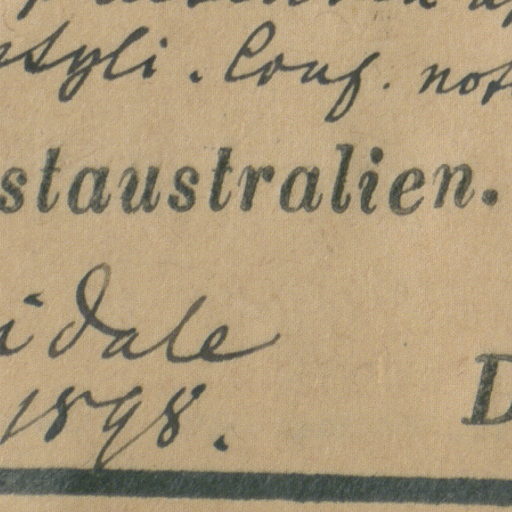 styli. Conf. not
staustralien.
idale
D
1898.